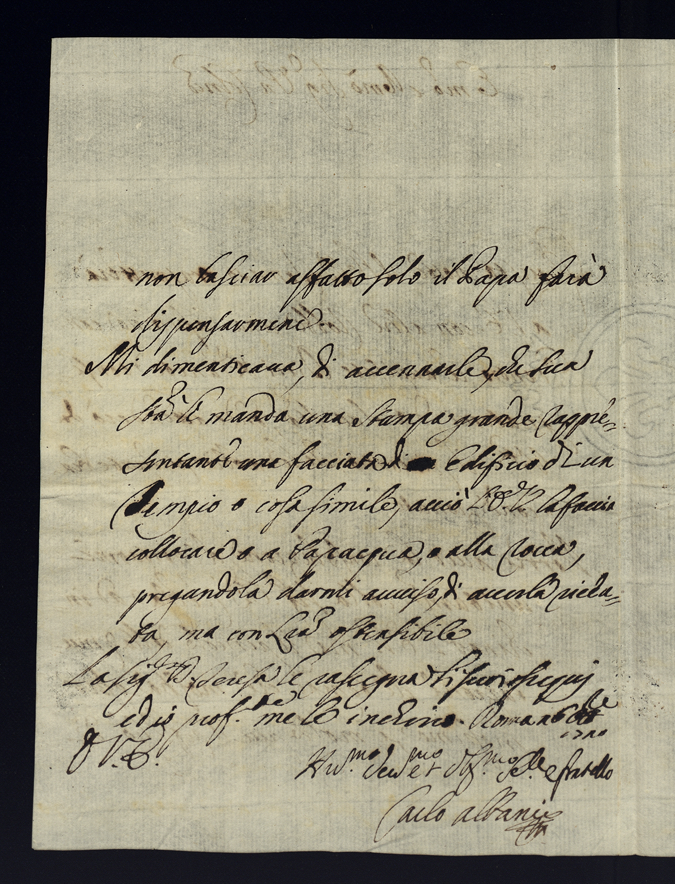 non lasciar affatto solo il Papa farà
dispensarmene.
Mi dimenticava, di accennarle, che sua
Stà le manda una stampa grande rappre-
sentante una facciata di Edificio di un
Tempio o cosa simile, acciò la faccia
collocare o a Capacqua, o alla rocca,
pregandola darmi avviso, di averla ricevu-
ta, ma con ostensibile
La Sigra D. Teresa le rassegna i suoi ossequi
ed io prof. me le inchino. Roma 6
1710
D V. E.
Humo Devmo et Obmo e fratello
Carlo Albani